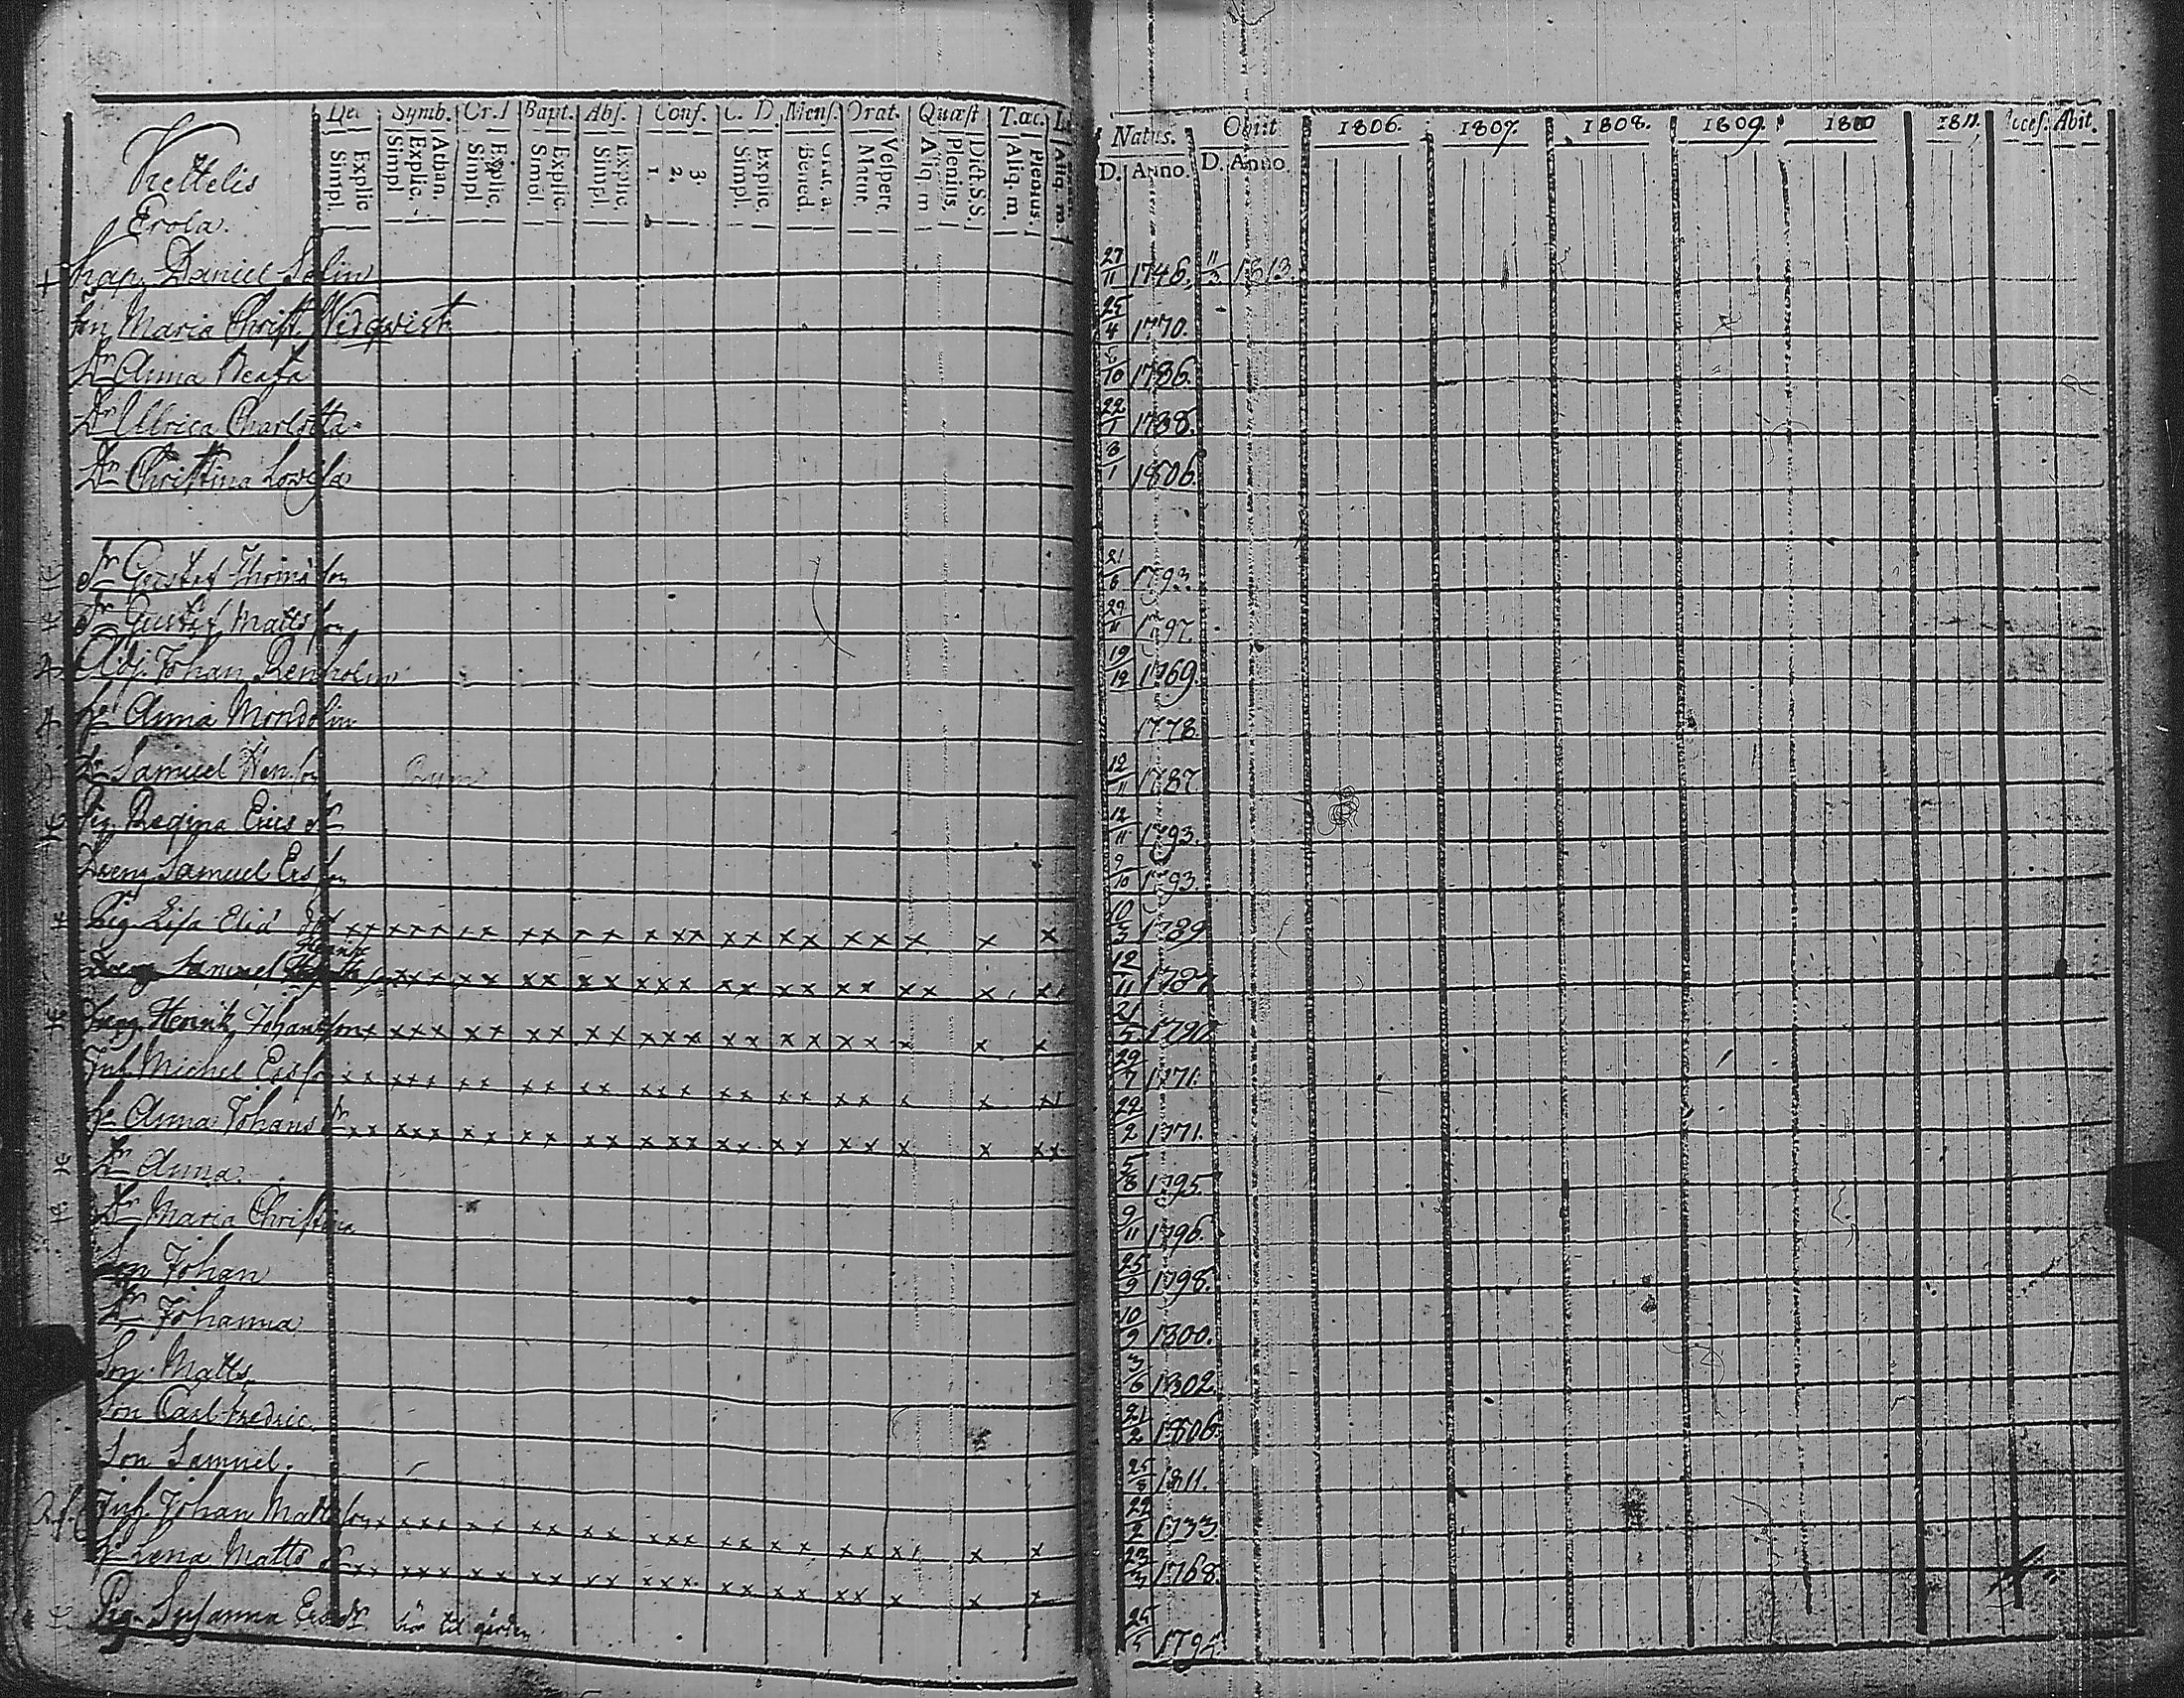 Dei Symb. Cr. I Bapt. Abs. Conf. C. D. Mens. Orat. Quæst T.æc.
Simpl. Explic Simpl Explic. Athan. Simpl Explic. Simpl. Explic. Simpl Explic. 1. 2. 3. Simpl. Explic. Bened. Matut. Vespert. Aliq. m Plenius. Dict. S.S. Aliq. m. Plenius. Aliq. m.
Natus. Obiit 1806. 1807. 1808. 1809. 1810 1811. Acces. Abit.
D. Anno. D. Anno.
Erola.
Cap. Daniel Solin 27/11 1746. 1813.
Maria Christ. Widqvist 25/4 1770.
Dr Anna Beata 10 1786.
Dr Ulrica Charlotta 22/1 1788.
Dr Christina Lovisa 8/1 1806.
Gustaf Thoms son 21/6 1793.
Gustaf Matts son 29/11 1797
Adj. Johan Renholm 19/12 1769.
Anna Mondolin 1778.
Samuel Hen. son 12/11 1787
Pig. Regina Erics dr 12/11 1793.
Dreng Samuel Ers son 9/10 1793.
Pig. Lisa Elia dr 1789
Dreng Samuel Henriks 12/11 1787
Dreng Henrik Johansson 21/5
Inh. Michel Ersson 29/7 1771.
Hu Anna Johans dr 22/2 1771.
Dr Anna. 5/8 1795.
Dr Maria Christina 9/11 1796.
Son Johan 25/9 1798.
Dr Johanna 10/9 1800.
Son Matts. 3/6 1802.
Son Carl Fredric. 21/2 1806.
Son Samuel. 1811.
Inh. Johan Mattsson 22/2 1733
Hu Lena Matts dr 23/3 1768.
Pig. Susanna Ersdr hör til gården 179